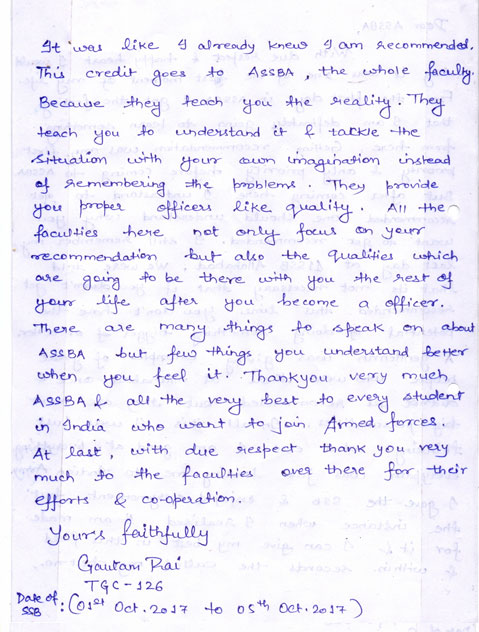 It was like I already knew I am recommended.
This credit goes to ASSBA, the whole faculty.
Because they teach you the reality. They
teach you to understand it & tackle the
situation with your own imagination instead
of remembering the problems. They provide
you proper officers like quality. All the
faculties here not only focus on your
recommendation but also the qualities which
are going to be there with you the rest of
your life after you become a officer.
There are many things to speak on about
ASSBA but few things you understand better
when you feel it. Thankyou very much
ASSBA & all the very best to every student
in India who want to join Armed forces.
At last, with due respect thank you very
much to the faculties over there for their
efforts & co-operation.
Yours faithfully
Gautam Rai
TGC-126
Date of SSB : (01st Oct. 2017 to 05th Oct. 2017)